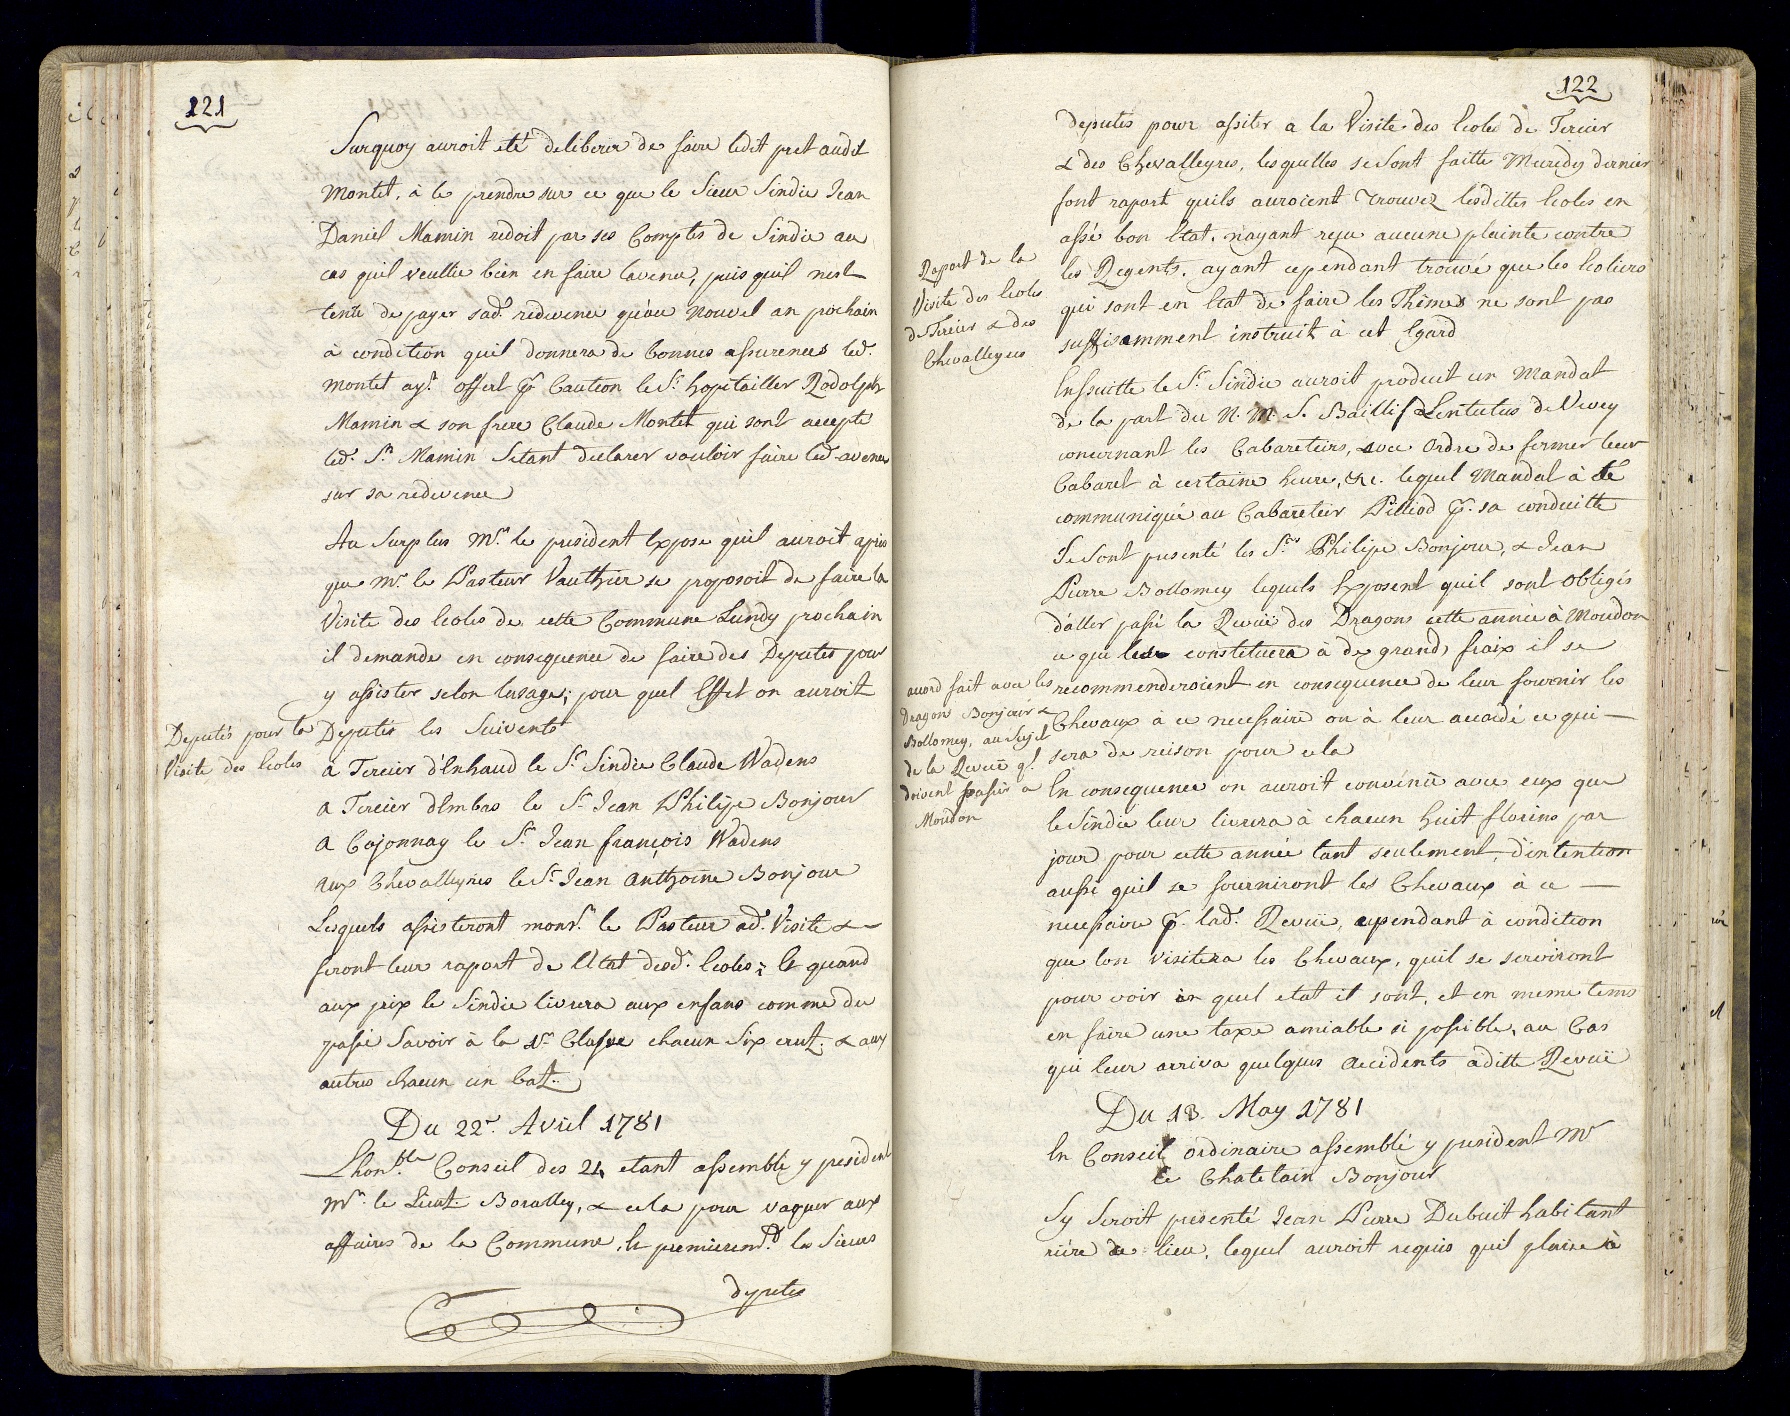 121
Surquoy auroit eté deliberer de faire ledit pret audit
Montet, à le prendre sur ce que le Sieur Sindic Jean
Daniel Mamin redoit par ses Comptes de Sindic au
cas quil veuille bien en faire lavence, puis quil nest
tenu de payer sad. redevence qu'au nouvel an prochain
à condition quil donnera de bonnes assurences led.
montet ayt. offert pr. Caution le Sr. hopitailler Rodolph
Mamin & son frere Claude Montet qui sont accepté
led. Sr. Mamin Setant declarer vouloir faire led. avence
sur sa redevence
Au Surplus Mr. le president Expose quil auroit apris
que Mr. le Pasteur Vauthier se proposoit de faire la
Visite des Ecoles de cette Commune Lundy prochain
il demande en consequence de faire des Deputés pour
y assister selon lusage; pour quel Effet on auroit
Deputés pour la
Visite des Ecoles
Deputés les Suivents
a Tercier d'Enhaud le Sr. Sindic Claude Wadens
a Tercier d'Embas le Sr. Jean Philipe Bonjour
a Cojonnay le Sr. Jean françois Wadens
aux Chevalleyres le Sr. Jean Anthoine Bonjour
Lesquels assisteront monsr. le Pasteur ad. Visite &
feront leur raport de l'Etat desd. Ecoles; Et quand
aux prix le Sindic livrera aux enfans comme du
passé Savoir à la 1re. Classe chacun Six crut. & aux
autres chacun un batz.
Du 22e. Avril 1781
Lhonble. Conseil des 24 etant assemblé y president
Mr. le Lieut. Boralley, & cela pour vaquer aux
affaires de la Commune, Et premierement les Sieurs
deputes
122
deputes pour assiter a la Visite des Ecoles de Tercier
& des Chevalleyres, lesquelles se sont faitte Mecredy dernier
font raport quils auroient trouvez lesdittes Ecoles en
assé bon Etat, nayant reçu aucune plainte contre
Raport de la
Visite des Ecoles
de Tercier & des
Chevalleyres
les Regents, ayant cependant trouvé que les Ecoliers
qui sont en Etat de faire les Thèmes ne sont pas
suffisamment instruit à cet Egard
Enssuitte le Sr. Sindic auroit produit un Mandat
de la part du N. M. S. Baillif Lentulus de Vevey
concernant les Cabareteurs, avec Ordre de fermer leur
Cabaret à certaine heure, &c. lequel Mandat à été
communiqué au Cabareteur Pilliod pr. sa conduitte
Se Sont presenté les Srs. Philipe Bonjour, & Jean
Pierre Bollomey lequels Exposent quil sont Obligés
d'aller passé la Revüe des Dragons cette année à Moudon
ce qui leur constituera à de grands fraix il se
accord fait avec les
Dragons Bonjour &
Bollomey, au Sujet
de la Revue ql.
doivent passer a
Moudon
recommenderoient en consequence de leur fournir les
Chevaux à ce necessaire ou à leur accordé ce qui
sera de reison pour cela
En consequence on auroit convenü avec eux que
le Sindic leur livrera à chacun huit florins par
jour pour cette année tant seulement, d'intention
aussi quil se fourniront les Chevaux à ce
necessaire pr. lad. Revüe, cependant à condition
que lon visitera les Chevaux, quil se serviront
pour voir en quel etat il sont, et en meme tems
en faire une taxe amiable si possible, au Cas
qui leur arriva quelques Accidents aditte Revüe
Du 13. May 1781
En Conseil ordinaire assemblé y president Mr
le Chatelain Bonjour
Sy Seroit presenté Jean Pierre Dubuit habitant
riére ce lieu, lequel auroit requis quil plaise à